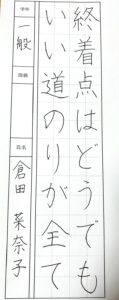 終着点はどうでも
いい道のりが全て
学年
一般
段級
氏名
倉田菜奈子